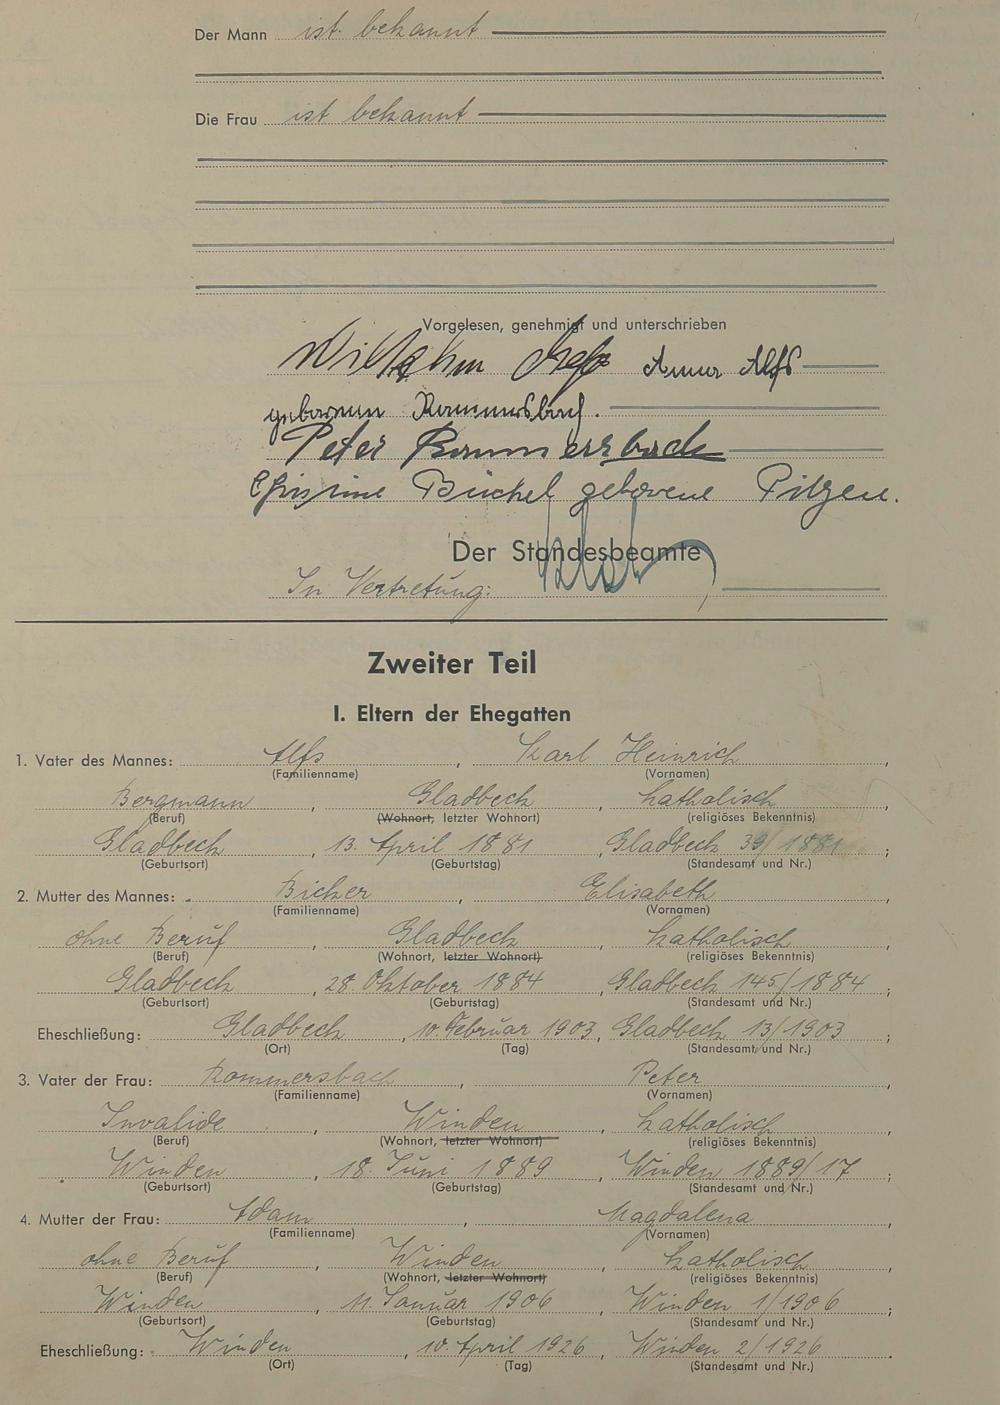 Der Mann ist bekannt
Die Frau ist bekannt
Vorgelesen, genehmigt und unterschrieben
Wilhelm Alfs Anna Alfs
geborenen Rommersbach.
Peter Rommersbach
Christine Büchel geborene Pitzen.
Der Standesbeamte
In Vertretung:
Zweiter Teil
I. Eltern der Ehegatten
1. Vater des Mannes: Alfs, Karl Heinrich,
(Familienname) (Vornamen)
Bergmann, Gladbeck, katholisch
(Beruf) (Wohnort, letzter Wohnort) (religiöses Bekenntnis)
Gladbeck, 13. April 1881, Gladbeck 39/1881;
(Geburtsort) (Geburtstag) (Standesamt und Nr.)
2. Mutter des Mannes: Bicker, Elisabeth,
(Familienname) (Vornamen)
ohne Beruf, Gladbeck, katholisch,
(Beruf) (Wohnort, letzter Wohnort) (religiöses Bekenntnis)
Gladbeck, 28. Oktober 1884, Gladbeck 145/1884;
(Geburtsort) (Geburtstag) (Standesamt und Nr.)
Eheschließung: Gladbeck, 10. Februar 1903, Gladbeck 13/1903;
(Ort) (Tag) (Standesamt und Nr.)
3. Vater der Frau: Rommersbach, Peter,
(Familienname) (Vornamen)
Invalide, Winden, katholisch,
(Beruf) (Wohnort, letzter Wohnort) (religiöses Bekenntnis)
Winden, 18. Juni 1889, Winden 1889/17;
(Geburtsort) (Geburtstag) (Standesamt und Nr.)
4. Mutter der Frau: Adam, Magdalena,
(Familienname) (Vornamen)
ohne Beruf, Winden, katholisch,
(Beruf) (Wohnort, letzter Wohnort) (religiöses Bekenntnis)
Winden, 11. Januar 1906, Winden 1/1906;
(Geburtsort) (Geburtstag) (Standesamt und Nr.)
Eheschließung: Winden, 10. April 1926, Winden 2/1926.
(Ort) (Tag) (Standesamt und Nr.)